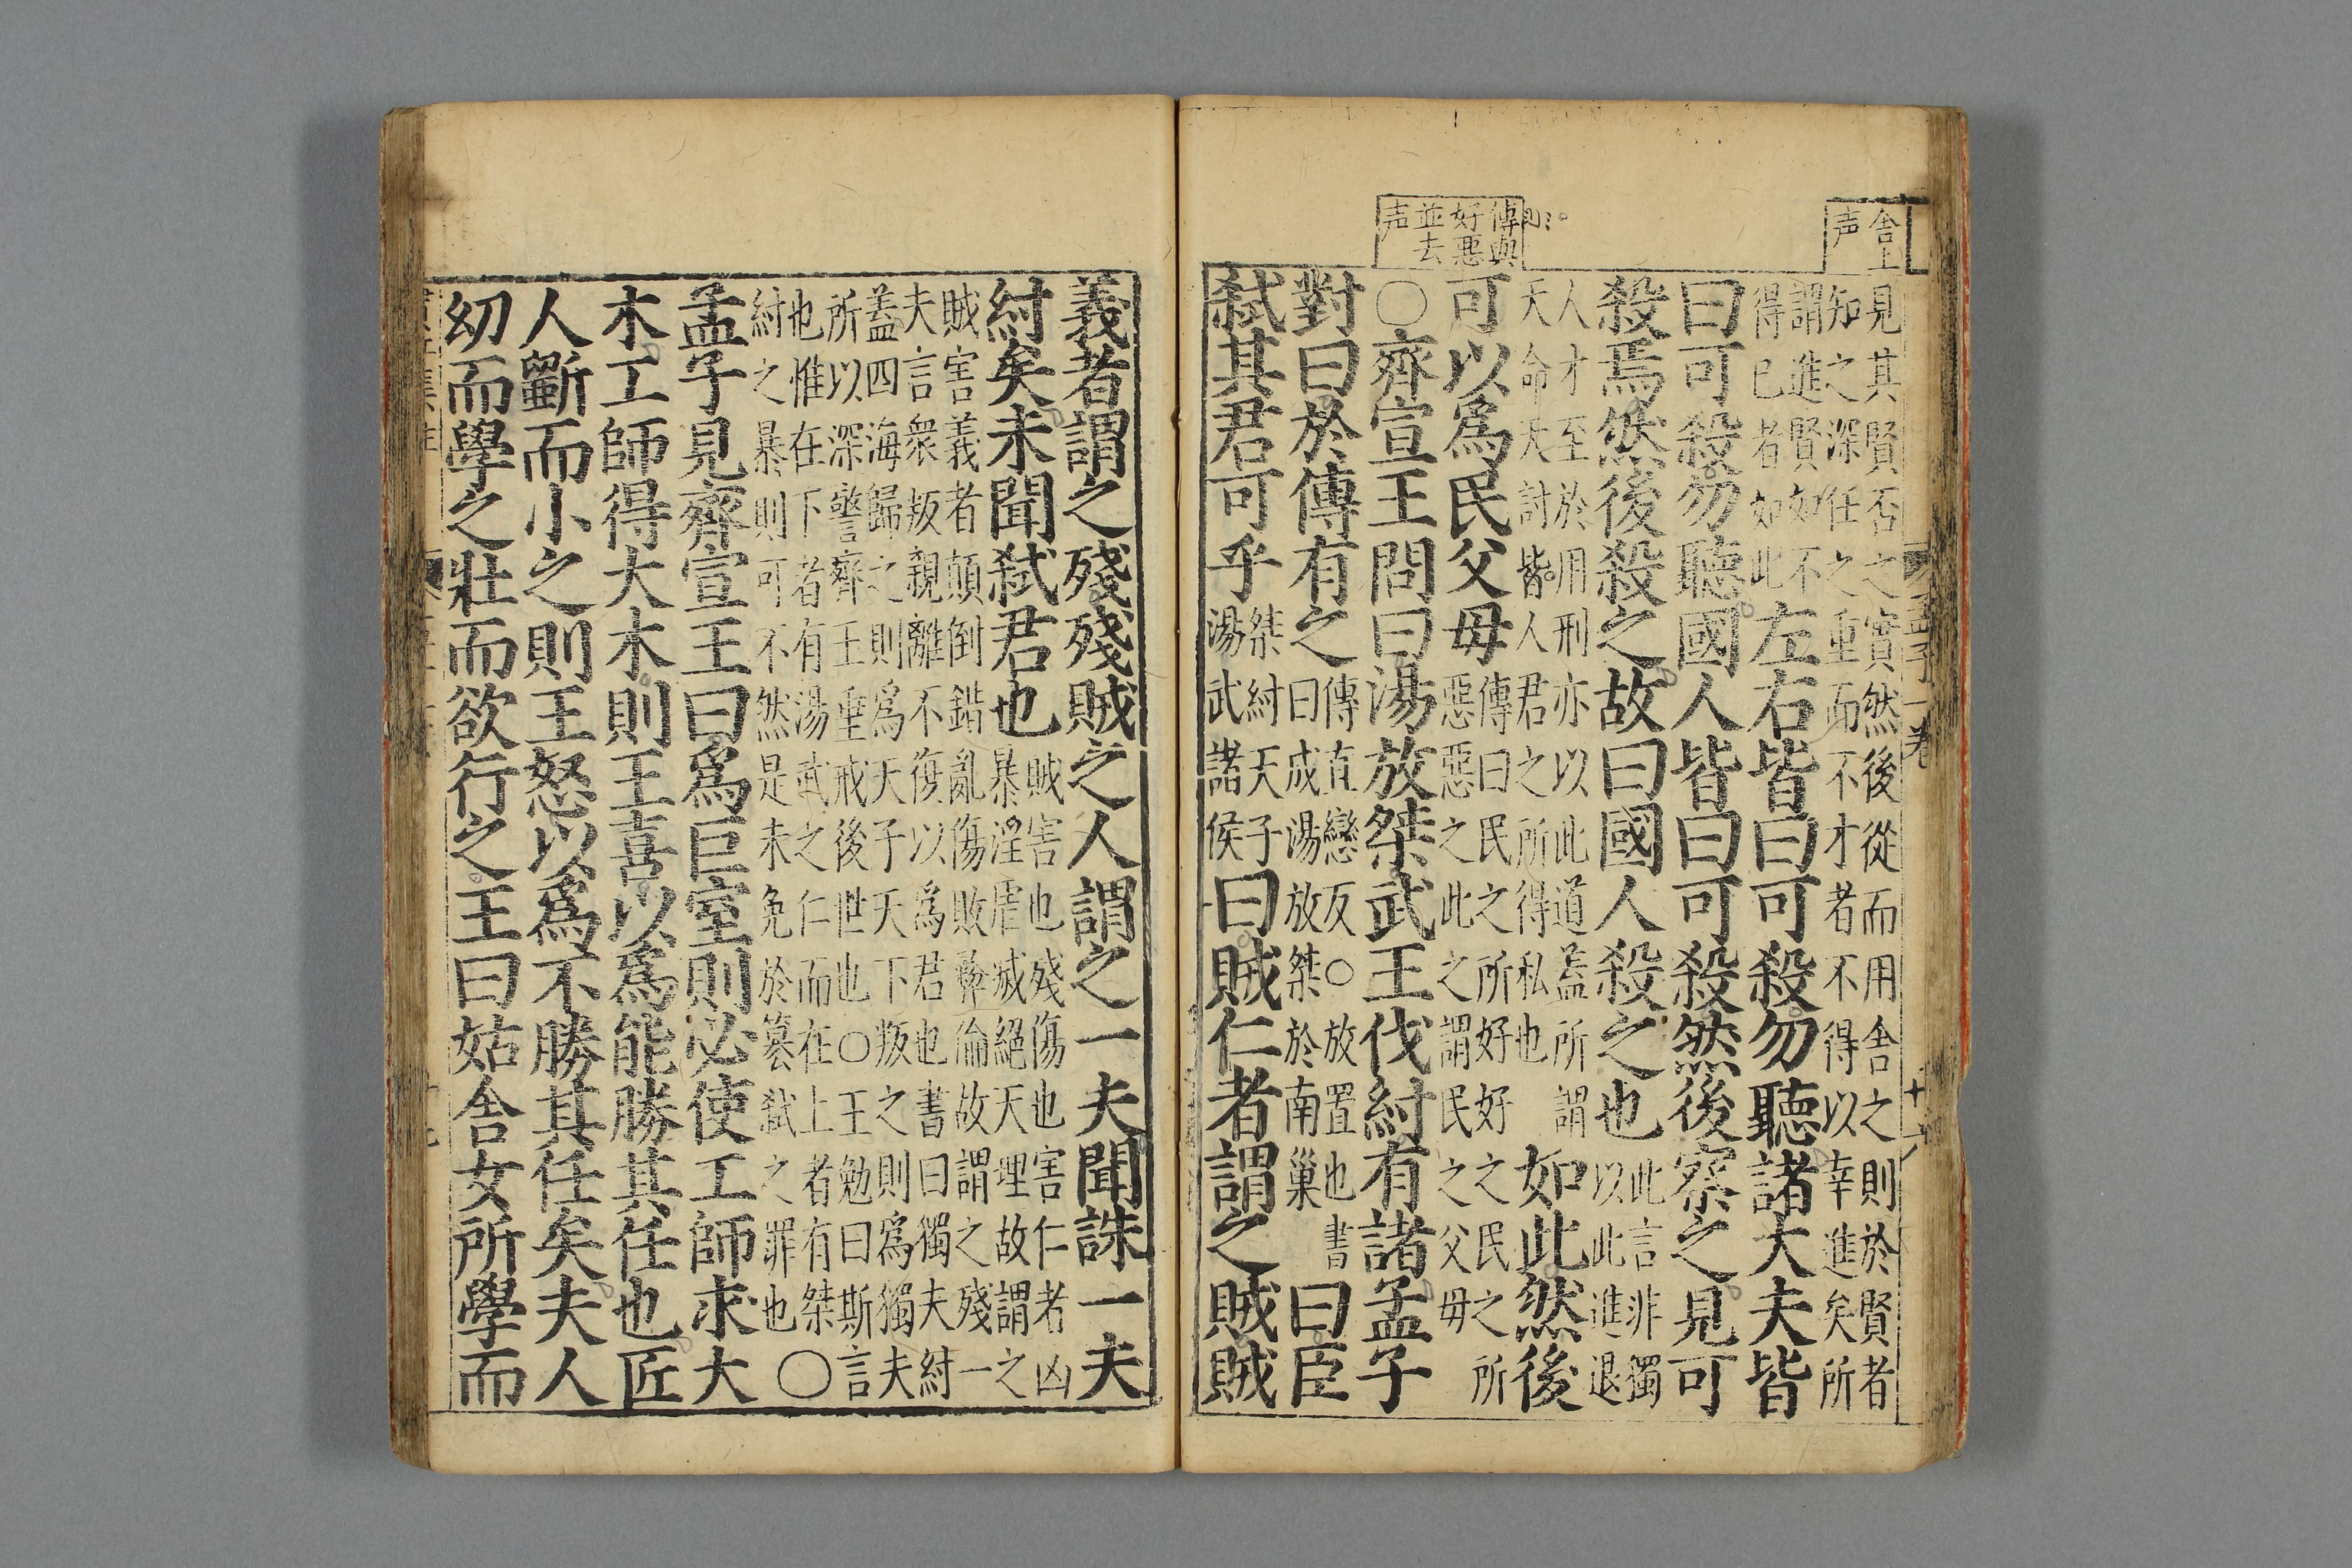 舍上
声
見其賢否之實然後從而用舍之則於賢者
知之深任之重而不才者不得以幸進矣所
謂進賢如不
得已者如此
左右皆曰可殺勿聽諸大夫皆
曰可殺勿聽國人皆曰可殺然後察之見可
殺焉然後殺之故曰國人殺之也
此言非獨
以此進退
人才至於用刑亦以此道蓋所謂
天命天討皆人君之所得私也
如此然後
傳與
好惡
並去
声
可以爲民父母
傳曰民之所好好之民之所
惡惡之此之謂民之父母
○齊宣王問曰湯放桀武王伐紂有諸孟子
對曰於傳有之
傳直戀反○放置也書
曰成湯放桀於南巢
曰臣
弑其君可乎
桀紂天子
湯武諸侯
曰賊仁者謂之賊賊
義者謂之殘殘賊之人謂之一夫聞誅一夫
紂矣未聞弑君也
賊害也殘傷也害仁者凶
暴淫虐滅絕天理故謂之
賊害義者顛倒錯亂傷敗彝倫故謂之殘一
夫言衆叛親離不復以爲君也書曰獨夫紂
蓋四海歸之則爲天子天下叛之則爲獨夫
所以深警齊王垂戒後世也○王勉曰斯言
也惟在下者有湯武之仁而在上者有桀
紂之暴則可不然是未免於篡弑之罪也
○
孟子見齊宣王曰爲巨室則必使工師求大
木工師得大木則王喜以爲能勝其任也匠
人斲而小之則王怒以爲不勝其任矣夫人
幼而學之壯而欲行之王曰姑舍女所學而